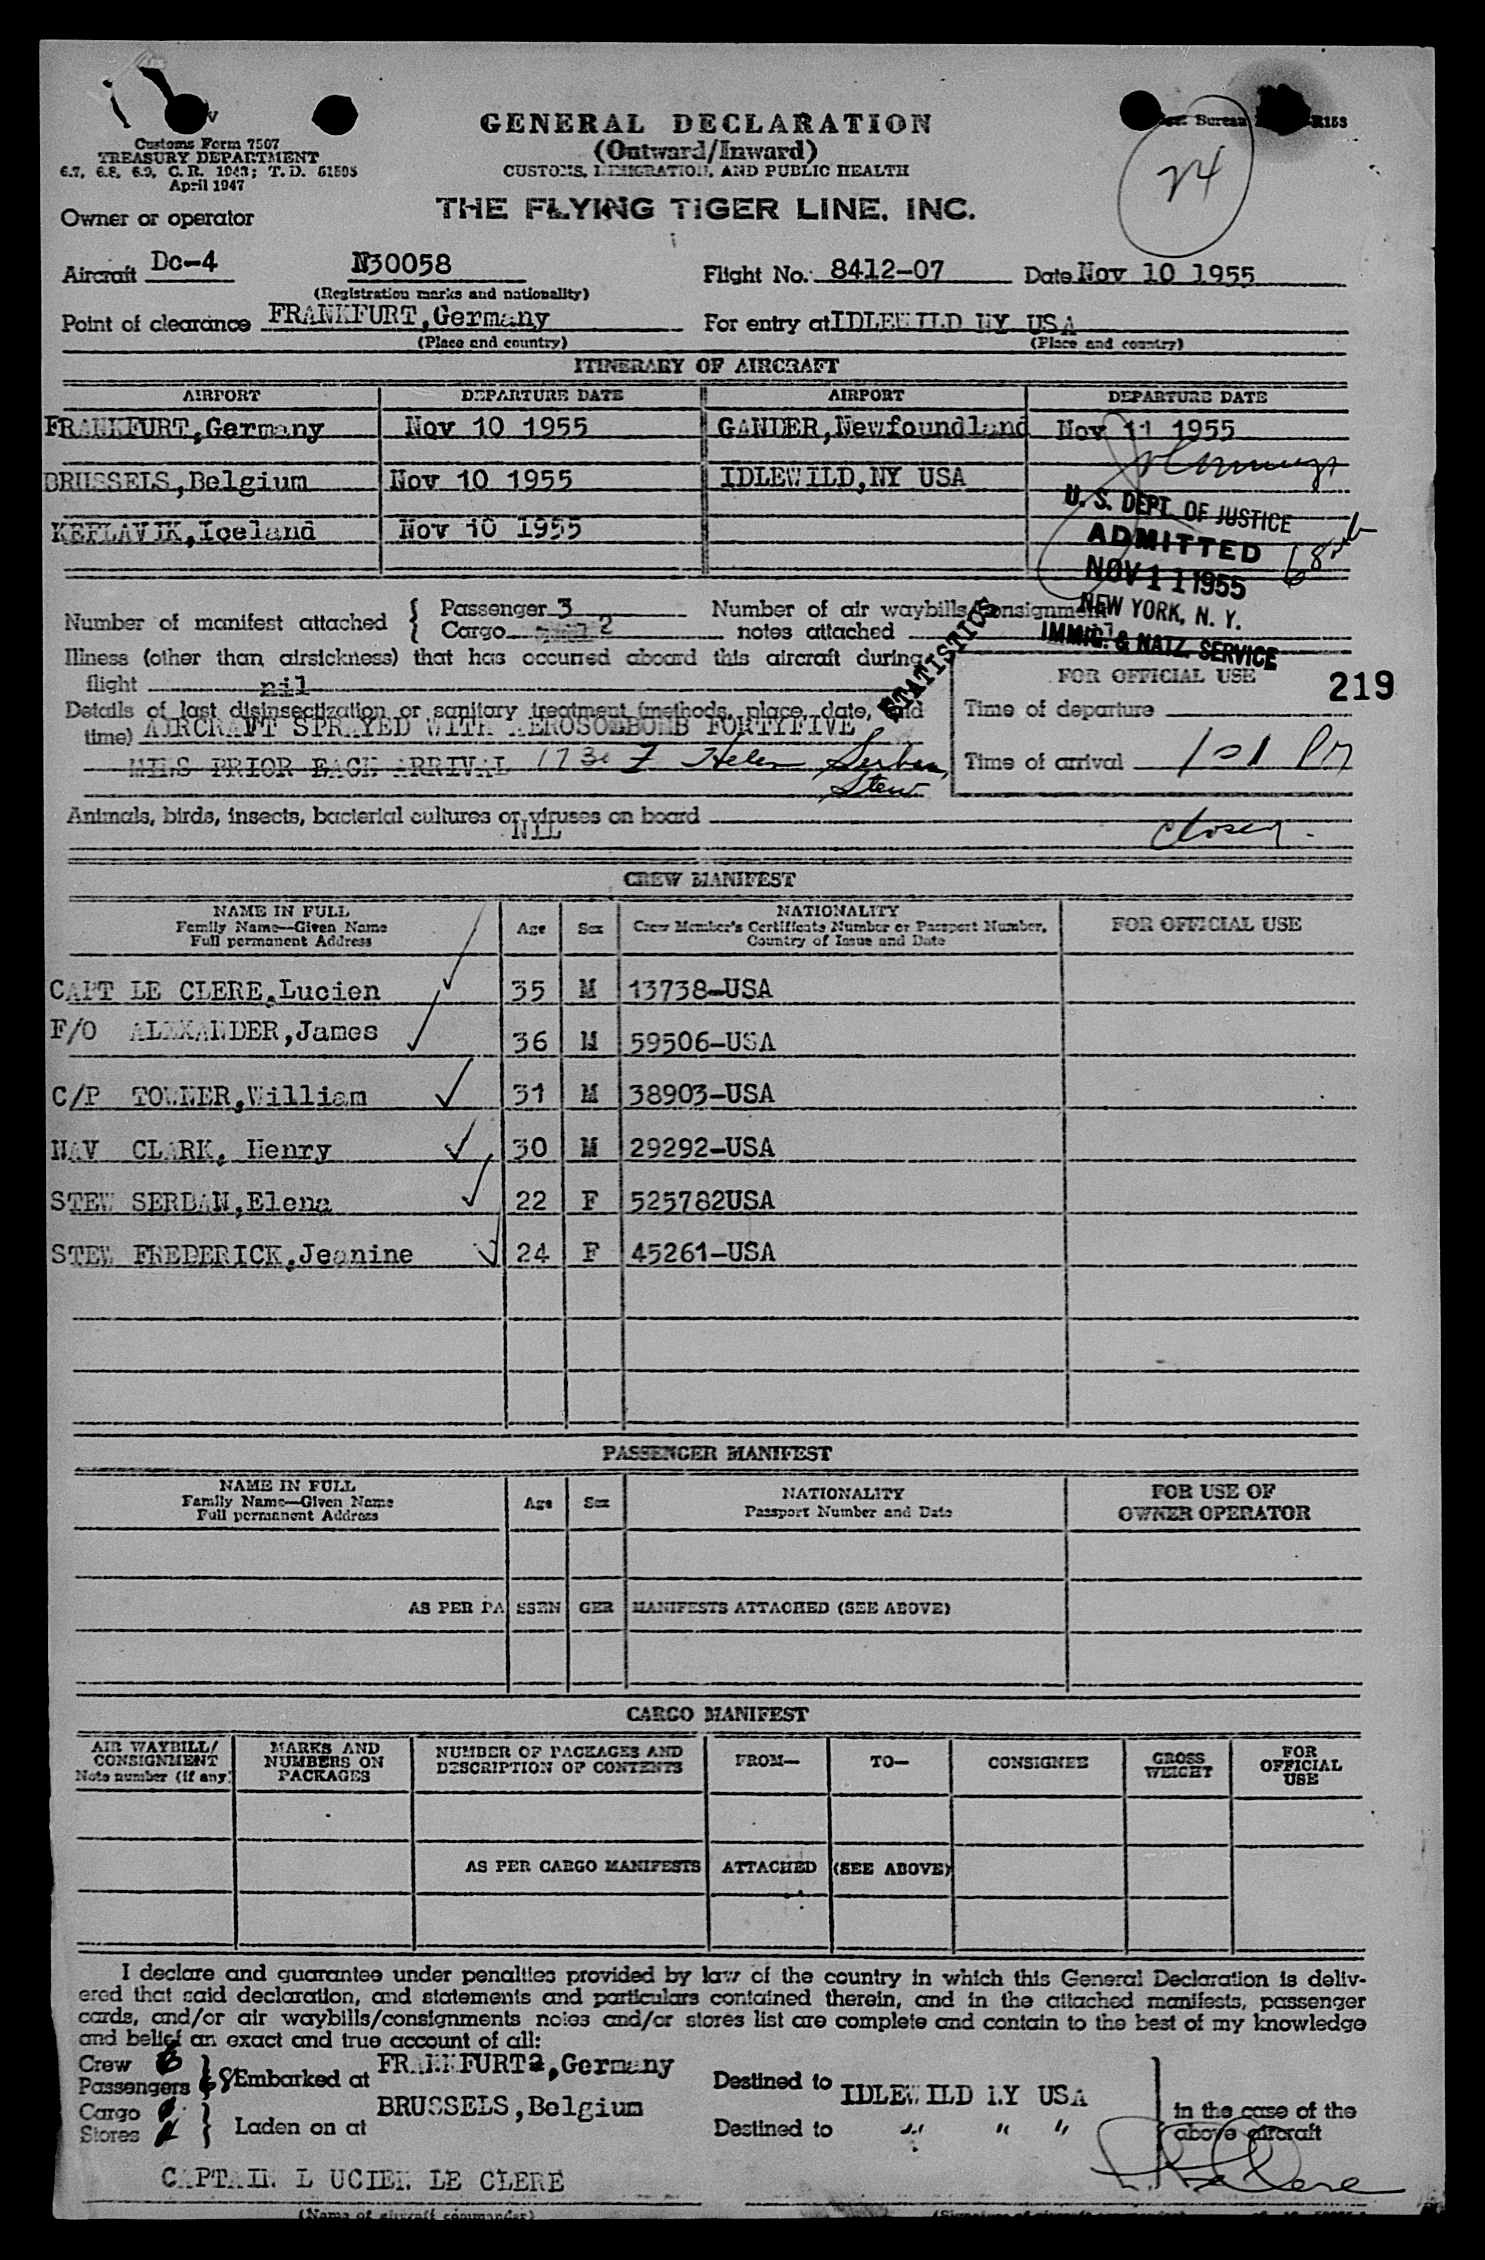 Customs Form 7507
TREASURY DEPARTMENT
6.7, 6.8, 6.9, C.R. 1943; T.D. 51595
April 1947
GENERAL DECLARATION
(Outward/Inward)
CUSTOMS, IMMIGRATION, AND PUBLIC HEALTH
Bureau
R153
24
Owner or operator
THE FLYING TIGER LINE, INC.
Aircraft Dc-4 N30058 Flight No. 8412-07 Date Nov 10 1955
(Registration marks and nationality)
Point of clearance FRANKFURT,Germany For entry at IDLEWILD NY USA
(Place and country) (Place and country)
ITINERARY OF AIRCRAFT
AIRPORT DEPARTURE DATE AIRPORT DEPARTURE DATE
FRANKFURT,Germany Nov 10 1955 GANDER,Newfoundland Nov 11 1955
BRUSSELS,Belgium Nov 10 1955 IDLEWILD,NY USA
KEFLAVIK,Iceland Nov 10 1955
U. S. DEPT. OF JUSTICE
ADMITTED
NOV 11 1955
NEW YORK, N. Y.
IMMIG. & NATZ. SERVICE
Number of manifest attached { Passenger 3 Number of air waybills/Consignment
Cargo 2 notes attached
STATISTICS
Illness (other than airsickness) that has occurred aboard this aircraft during
flight nil
FOR OFFICIAL USE
219
Details of last disinsectization or sanitary treatment (methods, place, date, and
time) AIRCRAFT SPRAYED WITH AEROSOLBOMB FORTYFIVE
MINS PRIOR EACH ARRIVAL 1730 Z Helen Serban,
Stew
Time of departure
Time of arrival 101 PM
Animals, birds, insects, bacterial cultures or viruses on board
NIL
CREW MANIFEST
NAME IN FULL Age Sex NATIONALITY FOR OFFICIAL USE
Family Name—Given Name Crew Member's Certificate Number or Passport Number,
Full permanent Address Country of Issue and Date
CAPT LE CLERE,Lucien 35 M 13738-USA
F/O ALEXANDER,James 36 M 59506-USA
C/P TOWNER,William 31 M 38903-USA
NAV CLARK, Henry 30 M 29292-USA
STEW SERBAN,Elena 22 F 525782USA
STEW FREDERICK,Jeanine 24 F 45261-USA
PASSENGER MANIFEST
NAME IN FULL Age Sex NATIONALITY FOR USE OF
Family Name—Given Name Passport Number and Date OWNER OPERATOR
Full permanent Address
AS PER PASSENGER MANIFESTS ATTACHED (SEE ABOVE)
CARGO MANIFEST
AIR WAYBILL/ MARKS AND NUMBER OF PACKAGES AND FROM— TO— CONSIGNEE GROSS FOR
CONSIGNMENT NUMBERS ON DESCRIPTION OF CONTENTS WEIGHT OFFICIAL
Note number (if any) PACKAGES USE
AS PER CARGO MANIFESTS ATTACHED (SEE ABOVE)
I declare and guarantee under penalties provided by law of the country in which this General Declaration is deliv-
ered that said declaration, and statements and particulars contained therein, and in the attached manifests, passenger
cards, and/or air waybills/consignments notes and/or stores list are complete and contain to the best of my knowledge
and belief an exact and true account of all:
Crew 6
Passengers Embarked at FRANKFURT,Germany Destined to IDLEWILD NY USA
BRUSSELS,Belgium
Cargo in the case of the
Stores Laden on at Destined to " " " above aircraft
CAPTAIN LUCIEN LE CLERE
L. Le Clere
(Name of aircraft commander)